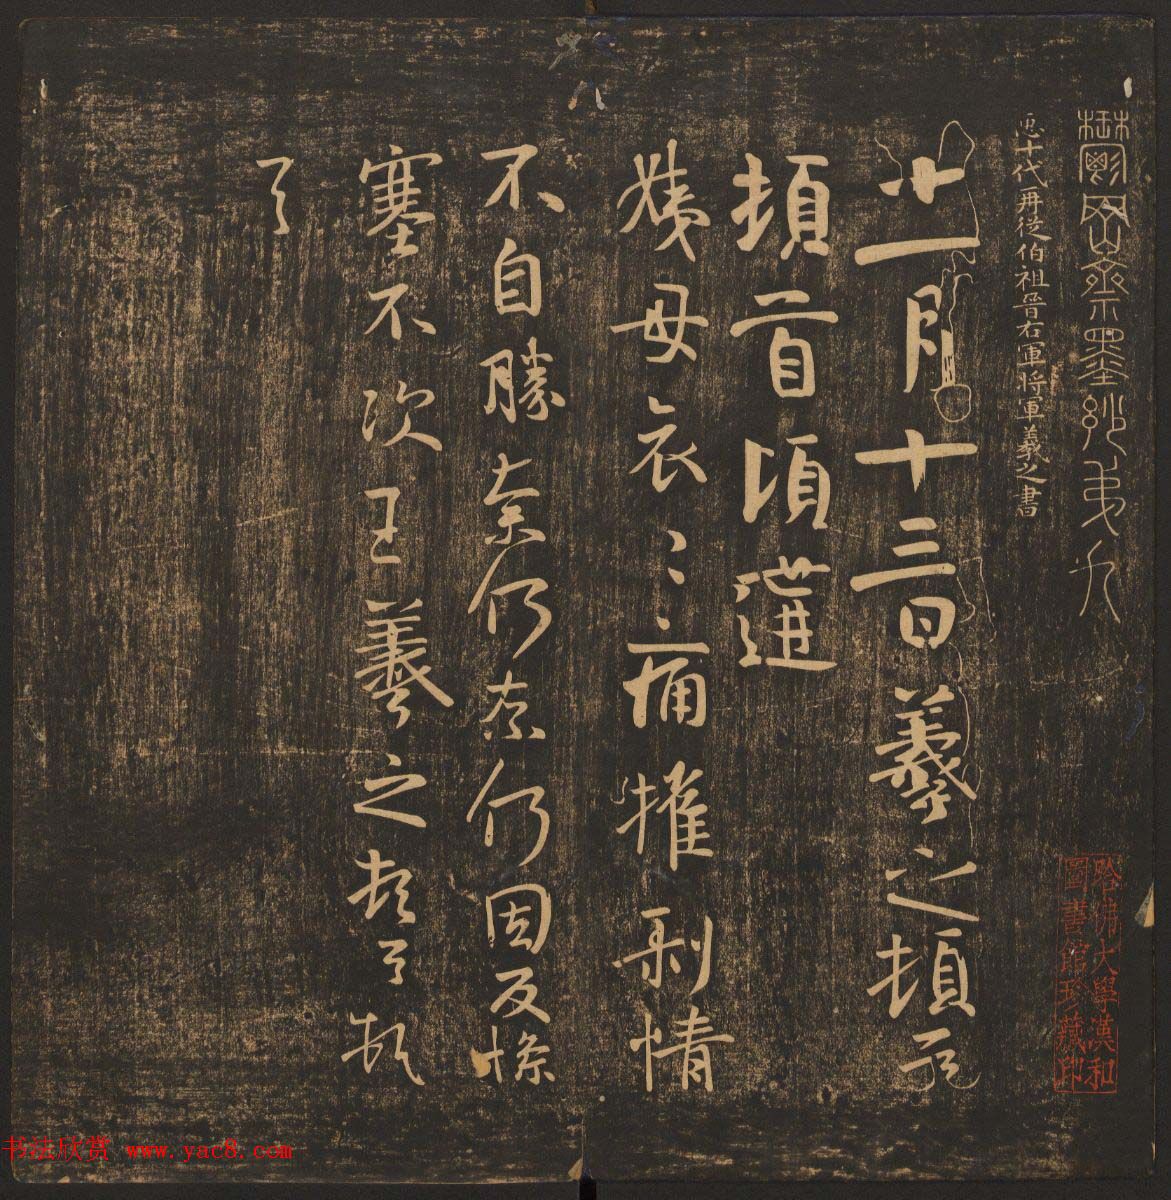 鬱岡齋墨妙第九
臣十代再從伯祖晉右軍將軍羲之書
十一月十三日羲之頓首
頓首頃遘
姨母哀〻痛摧剝情
不自勝奈何奈何因反慘
塞不次王羲之頓首頓
首
哈佛大學漢和
圖書館珍藏印
书法欣赏 www.yac8.com